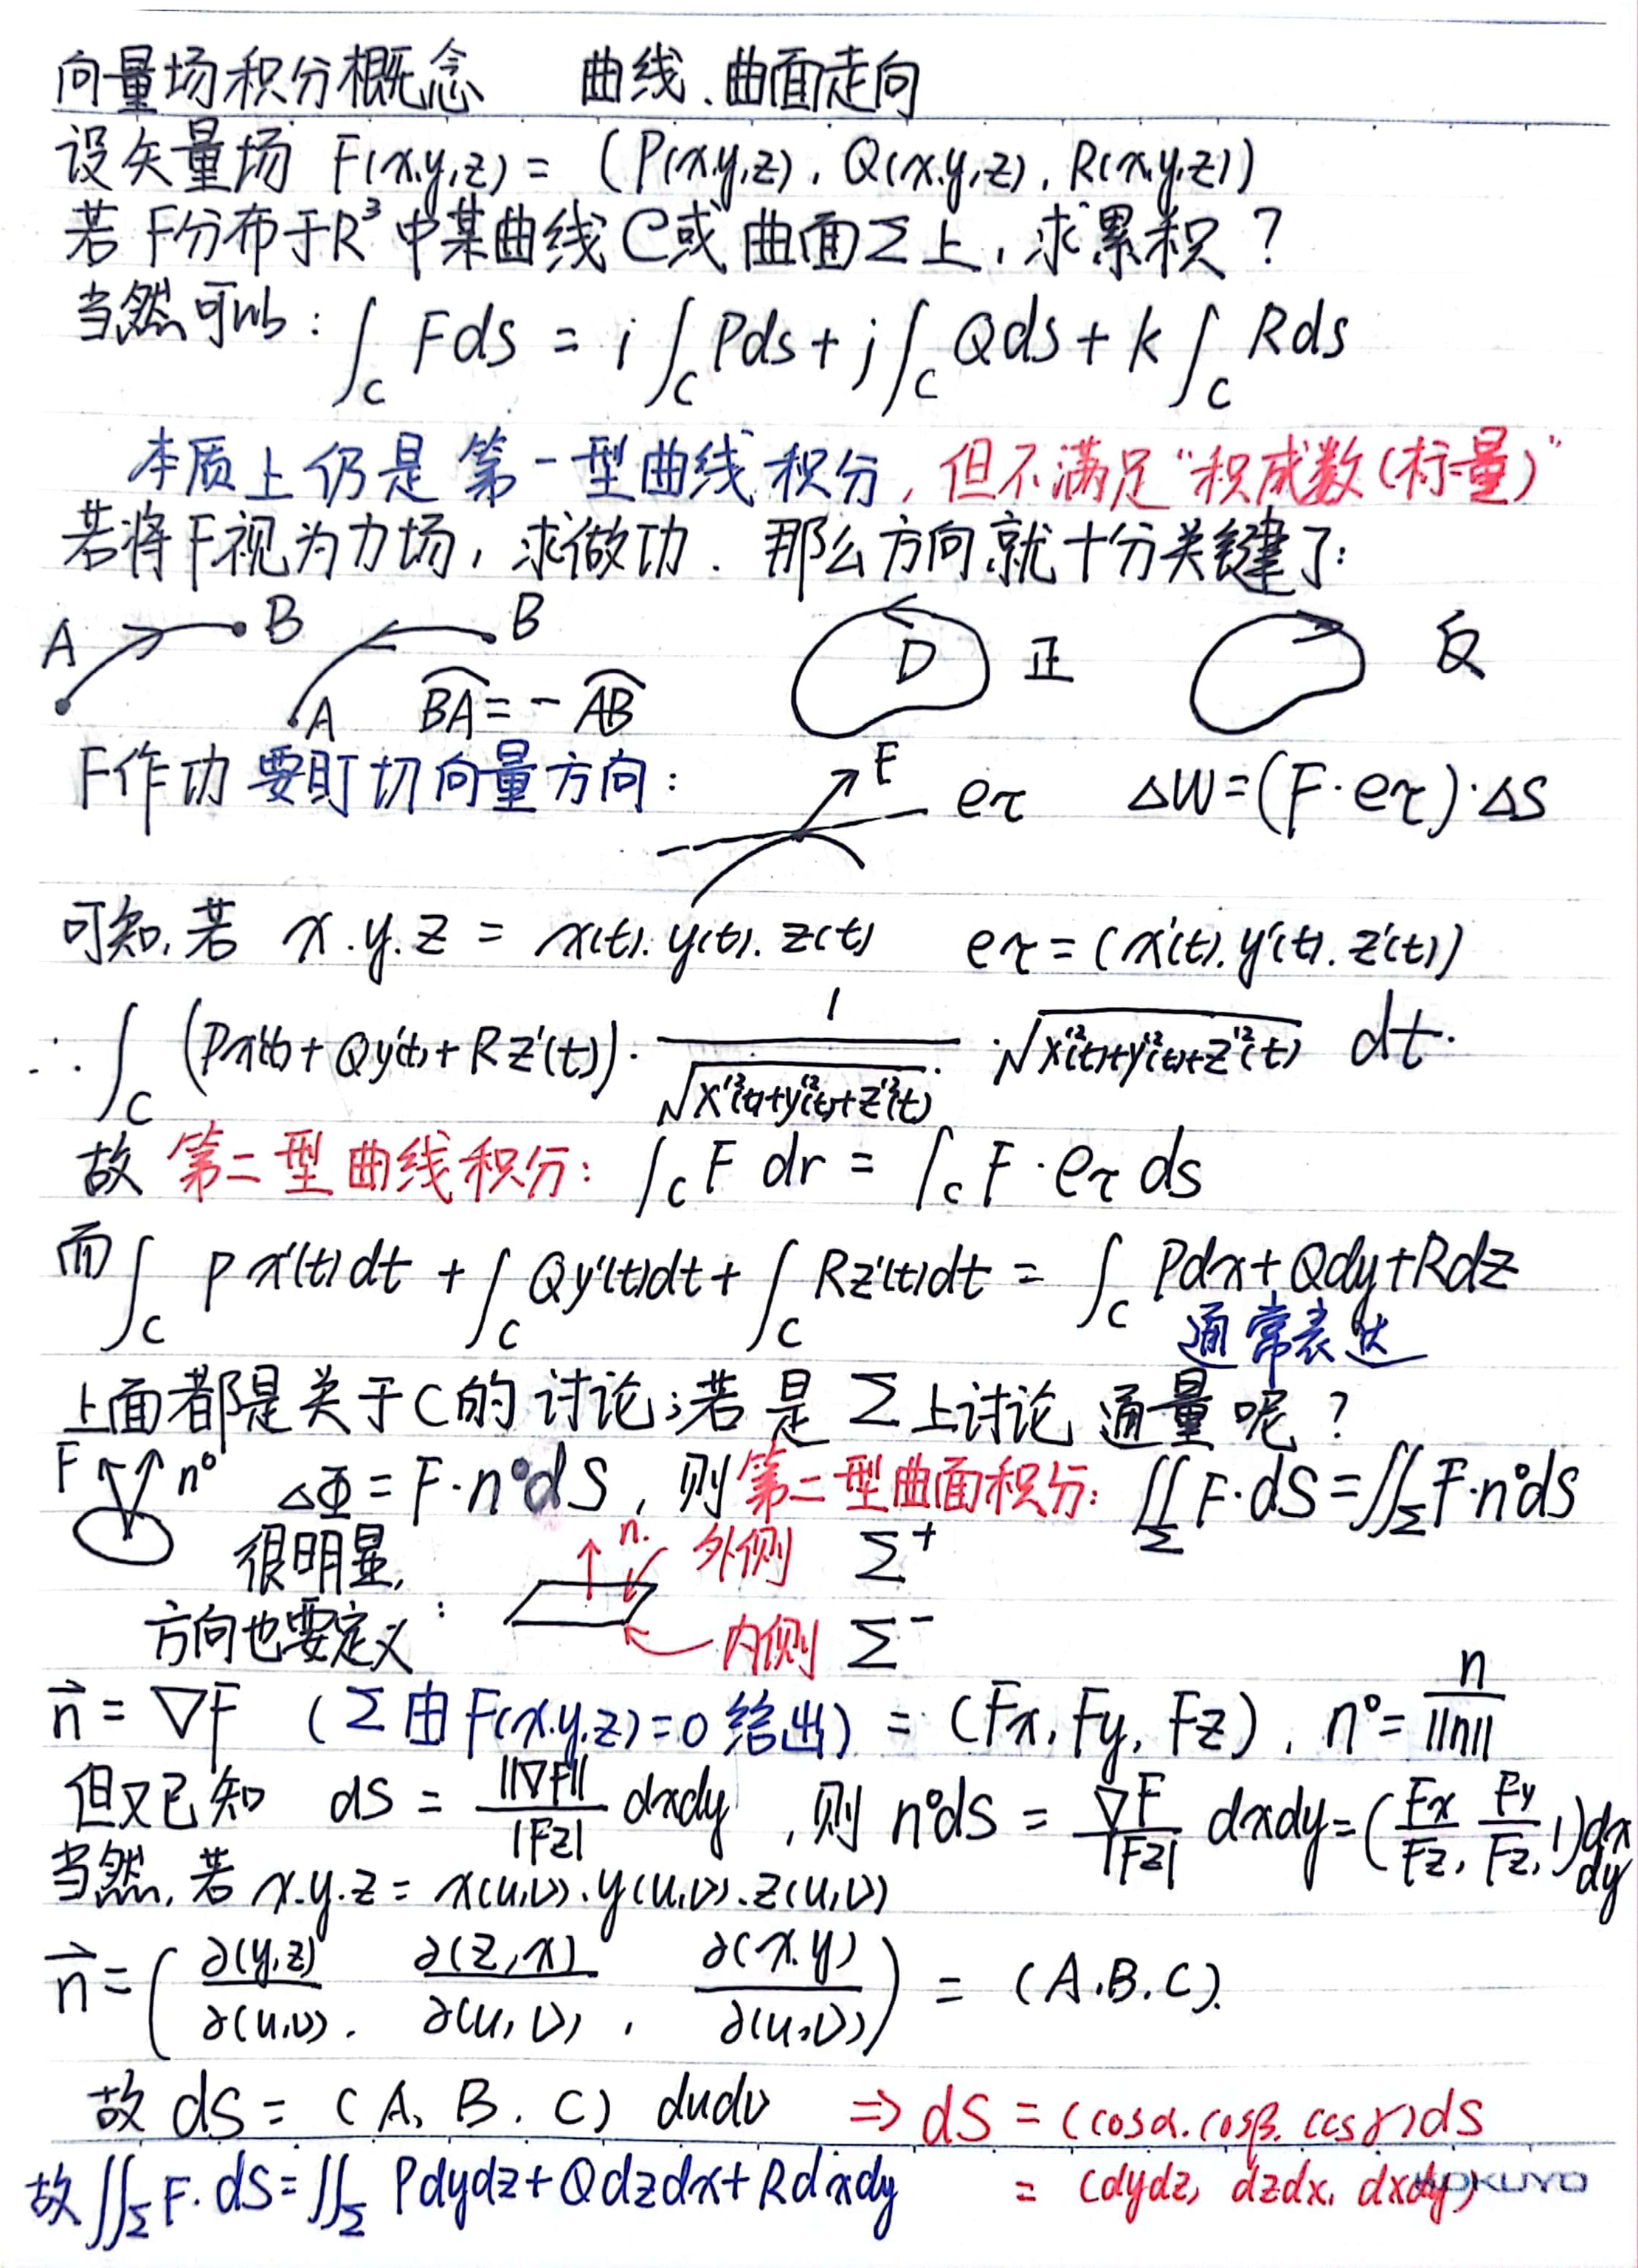 向量场积分概念 曲线、曲面走向
设矢量场 F(x,y,z) = (P(x,y,z), Q(x,y,z), R(x,y,z))
若F分布于R³中某曲线C或曲面Σ上,求累积?
当然可以: ∫_C Fds = i∫_C Pds + j∫_C Qds + k∫_C Rds
本质上仍是第一型曲线积分,但不满足“积成数(标量)”
若将F视为力场,求做功.那么方向就十分关键了:
A B B A BA = - AB D 正 反
F作功要盯切向量方向: F eτ ΔW=(F·eτ)·ΔS
可知,若 x.y.z = x(t).y(t).z(t) eτ=(x'(t).y'(t).z'(t))
∴ ∫_C (Px'(t)+Qy'(t)+Rz'(t))· 1/√(x'²(t)+y'²(t)+z'²(t)) ·√(x'²(t)+y'²(t)+z'²(t)) dt.
故 第二型曲线积分: ∫_C F dr = ∫_C F·eτ ds
而 ∫_C Px'(t)dt + ∫_C Qy'(t)dt + ∫_C Rz'(t)dt = ∫_C Pdx+Qdy+Rdz
通常表达
上面都是关于C的讨论;若是Σ上讨论通量呢?
F n° ΔΦ=F·n°dS,则第二型曲面积分: ∬_Σ F·dS=∬_Σ F·n°dS
很明显, n. 外侧 Σ⁺
方向也要定义: 内侧 Σ⁻
n⃗ = ∇F (Σ由F(x.y.z)=0给出) = (Fx, Fy, Fz), n°= n/||n||
但又已知 dS = ||∇F||/|Fz| dxdy,则 n°dS = ∇F/|Fz| dxdy=(Fx/Fz, Fy/Fz, 1)dxdy
当然,若 x.y.z = x(u,v).y(u,v).z(u,v)
n⃗=(∂(y,z)/∂(u,v), ∂(z,x)/∂(u,v), ∂(x,y)/∂(u,v)) = (A.B.C).
故 dS = (A, B, C) dudv ⇒ dS = (cosα.cosβ.cosγ)dS
故∬_Σ F·dS=∬_Σ Pdydz+Qdzdx+Rdxdy = (dydz, dzdx, dxdy)
KOKUYO